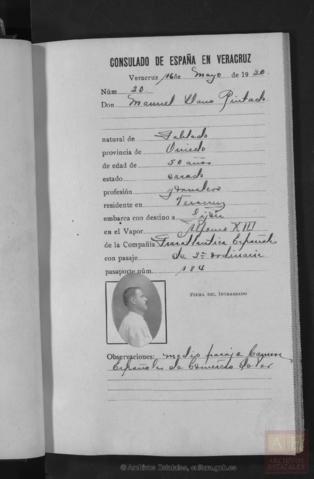 CONSULADO DE ESPAÑA EN VERACRUZ
Veracruz, 16 de Mayo de 1920
Núm 20
Don Manuel Llano Pintado
natural de
provincia de Oviedo
de edad de 50 años
estado casado
profesión jornalero
residente en Veracruz
embarca con destino a Gijón
en el Vapor Alfonso XIII
de la Compañía Trasatlántica Española
con pasaje de 3ª ordinaria
pasaporte núm. 184
FIRMA DEL INTERESADO
Observaciones: medio pasaje
Españoles de Comercio
© Archivos Estatales, cultura.gob.es
ARCHIVOS
ESTATALES